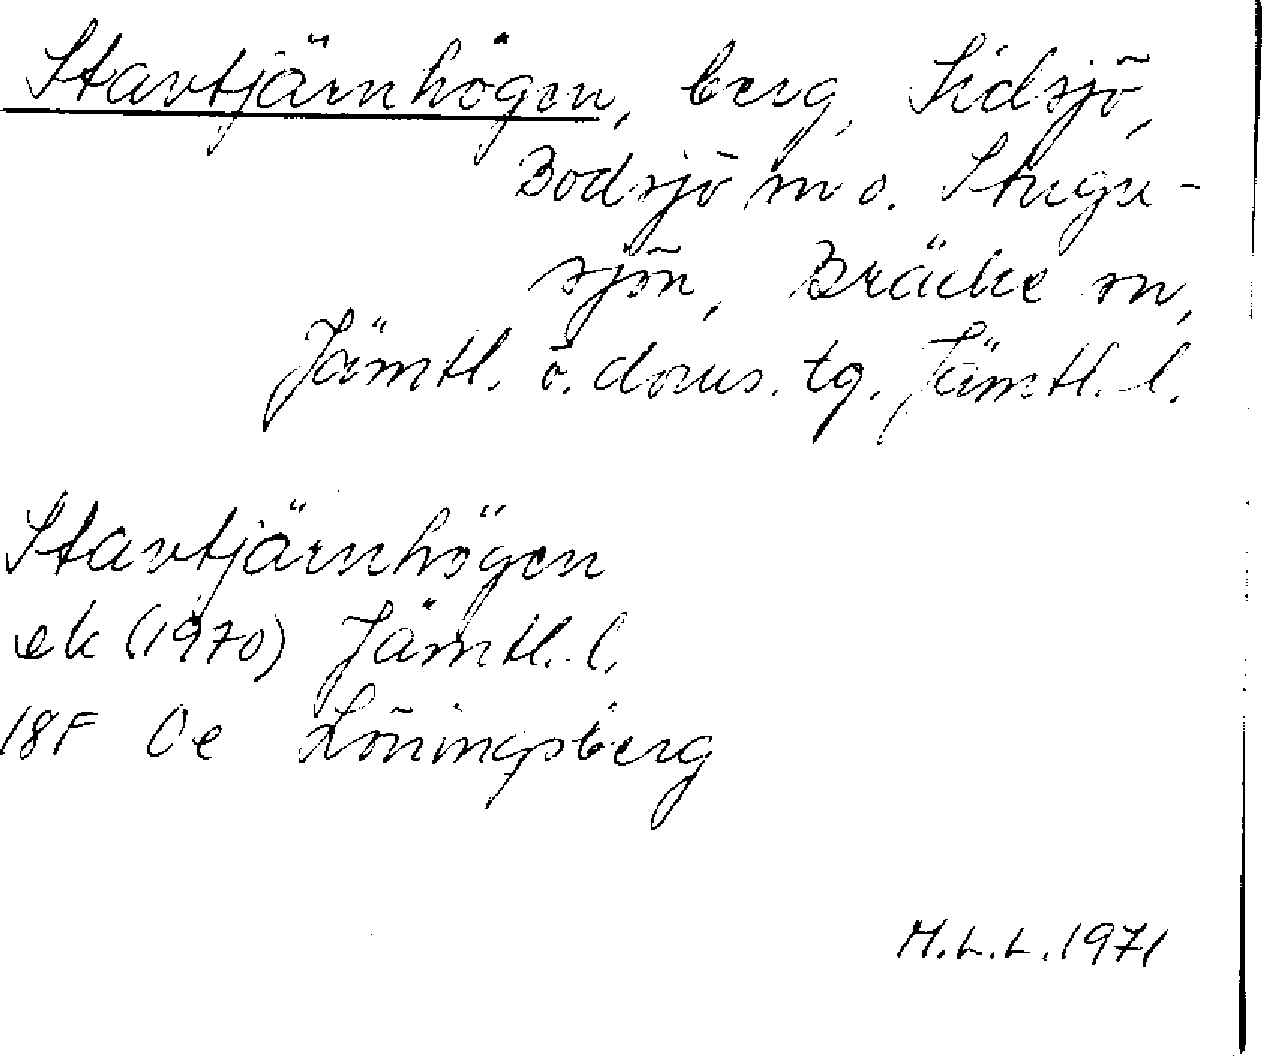 Stavtjärnhögen, berg, Sidsjö,
Bodsjö sn o. Stugu-
sjön, Bräcke sn,
Jämtl. ö. doms. tg. Jämtl. l.
Stavtjärnhögen
ek (1970) Jämtl. l.
18F 0e Löningsberg
M.L.L. 1971